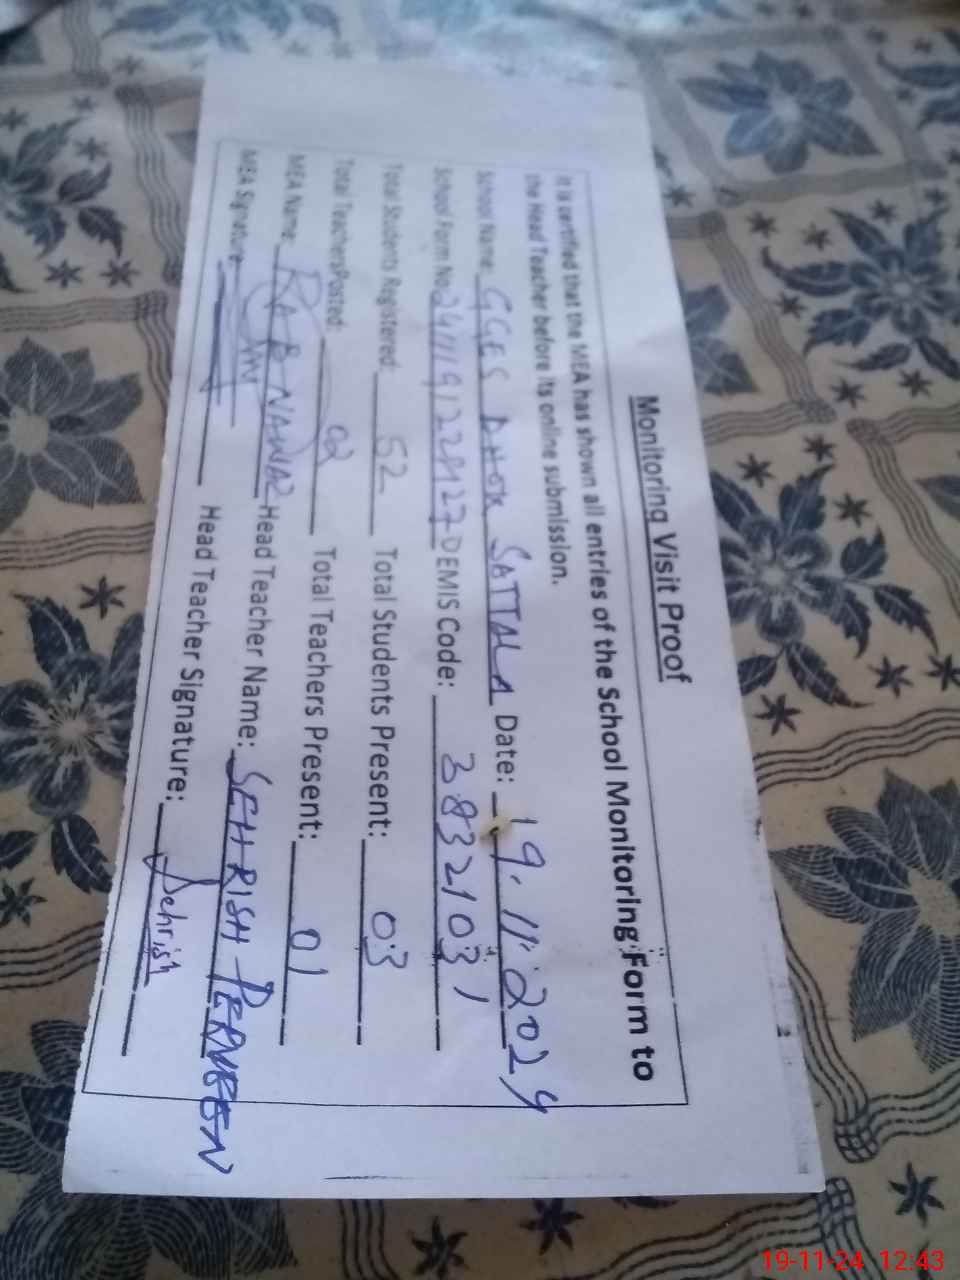 Monitoring Visit Proof
It is certified that the MEA has shown all entries of the School Monitoring Form to
the Head Teacher before its online submission.
School Name: GGES DHOK SATTALA Date: 19.11.2024
School Form No. DEMIS Code: 38321031
Total Students Registered: 52 Total Students Present: 03
Total TeachersPosted: 02 Total Teachers Present: 01
MEA Name: RAB NAWAZ Head Teacher Name: SEHRISH PERVEEN
MEA Signature: Head Teacher Signature: Sehrish
19-11-24 12:43